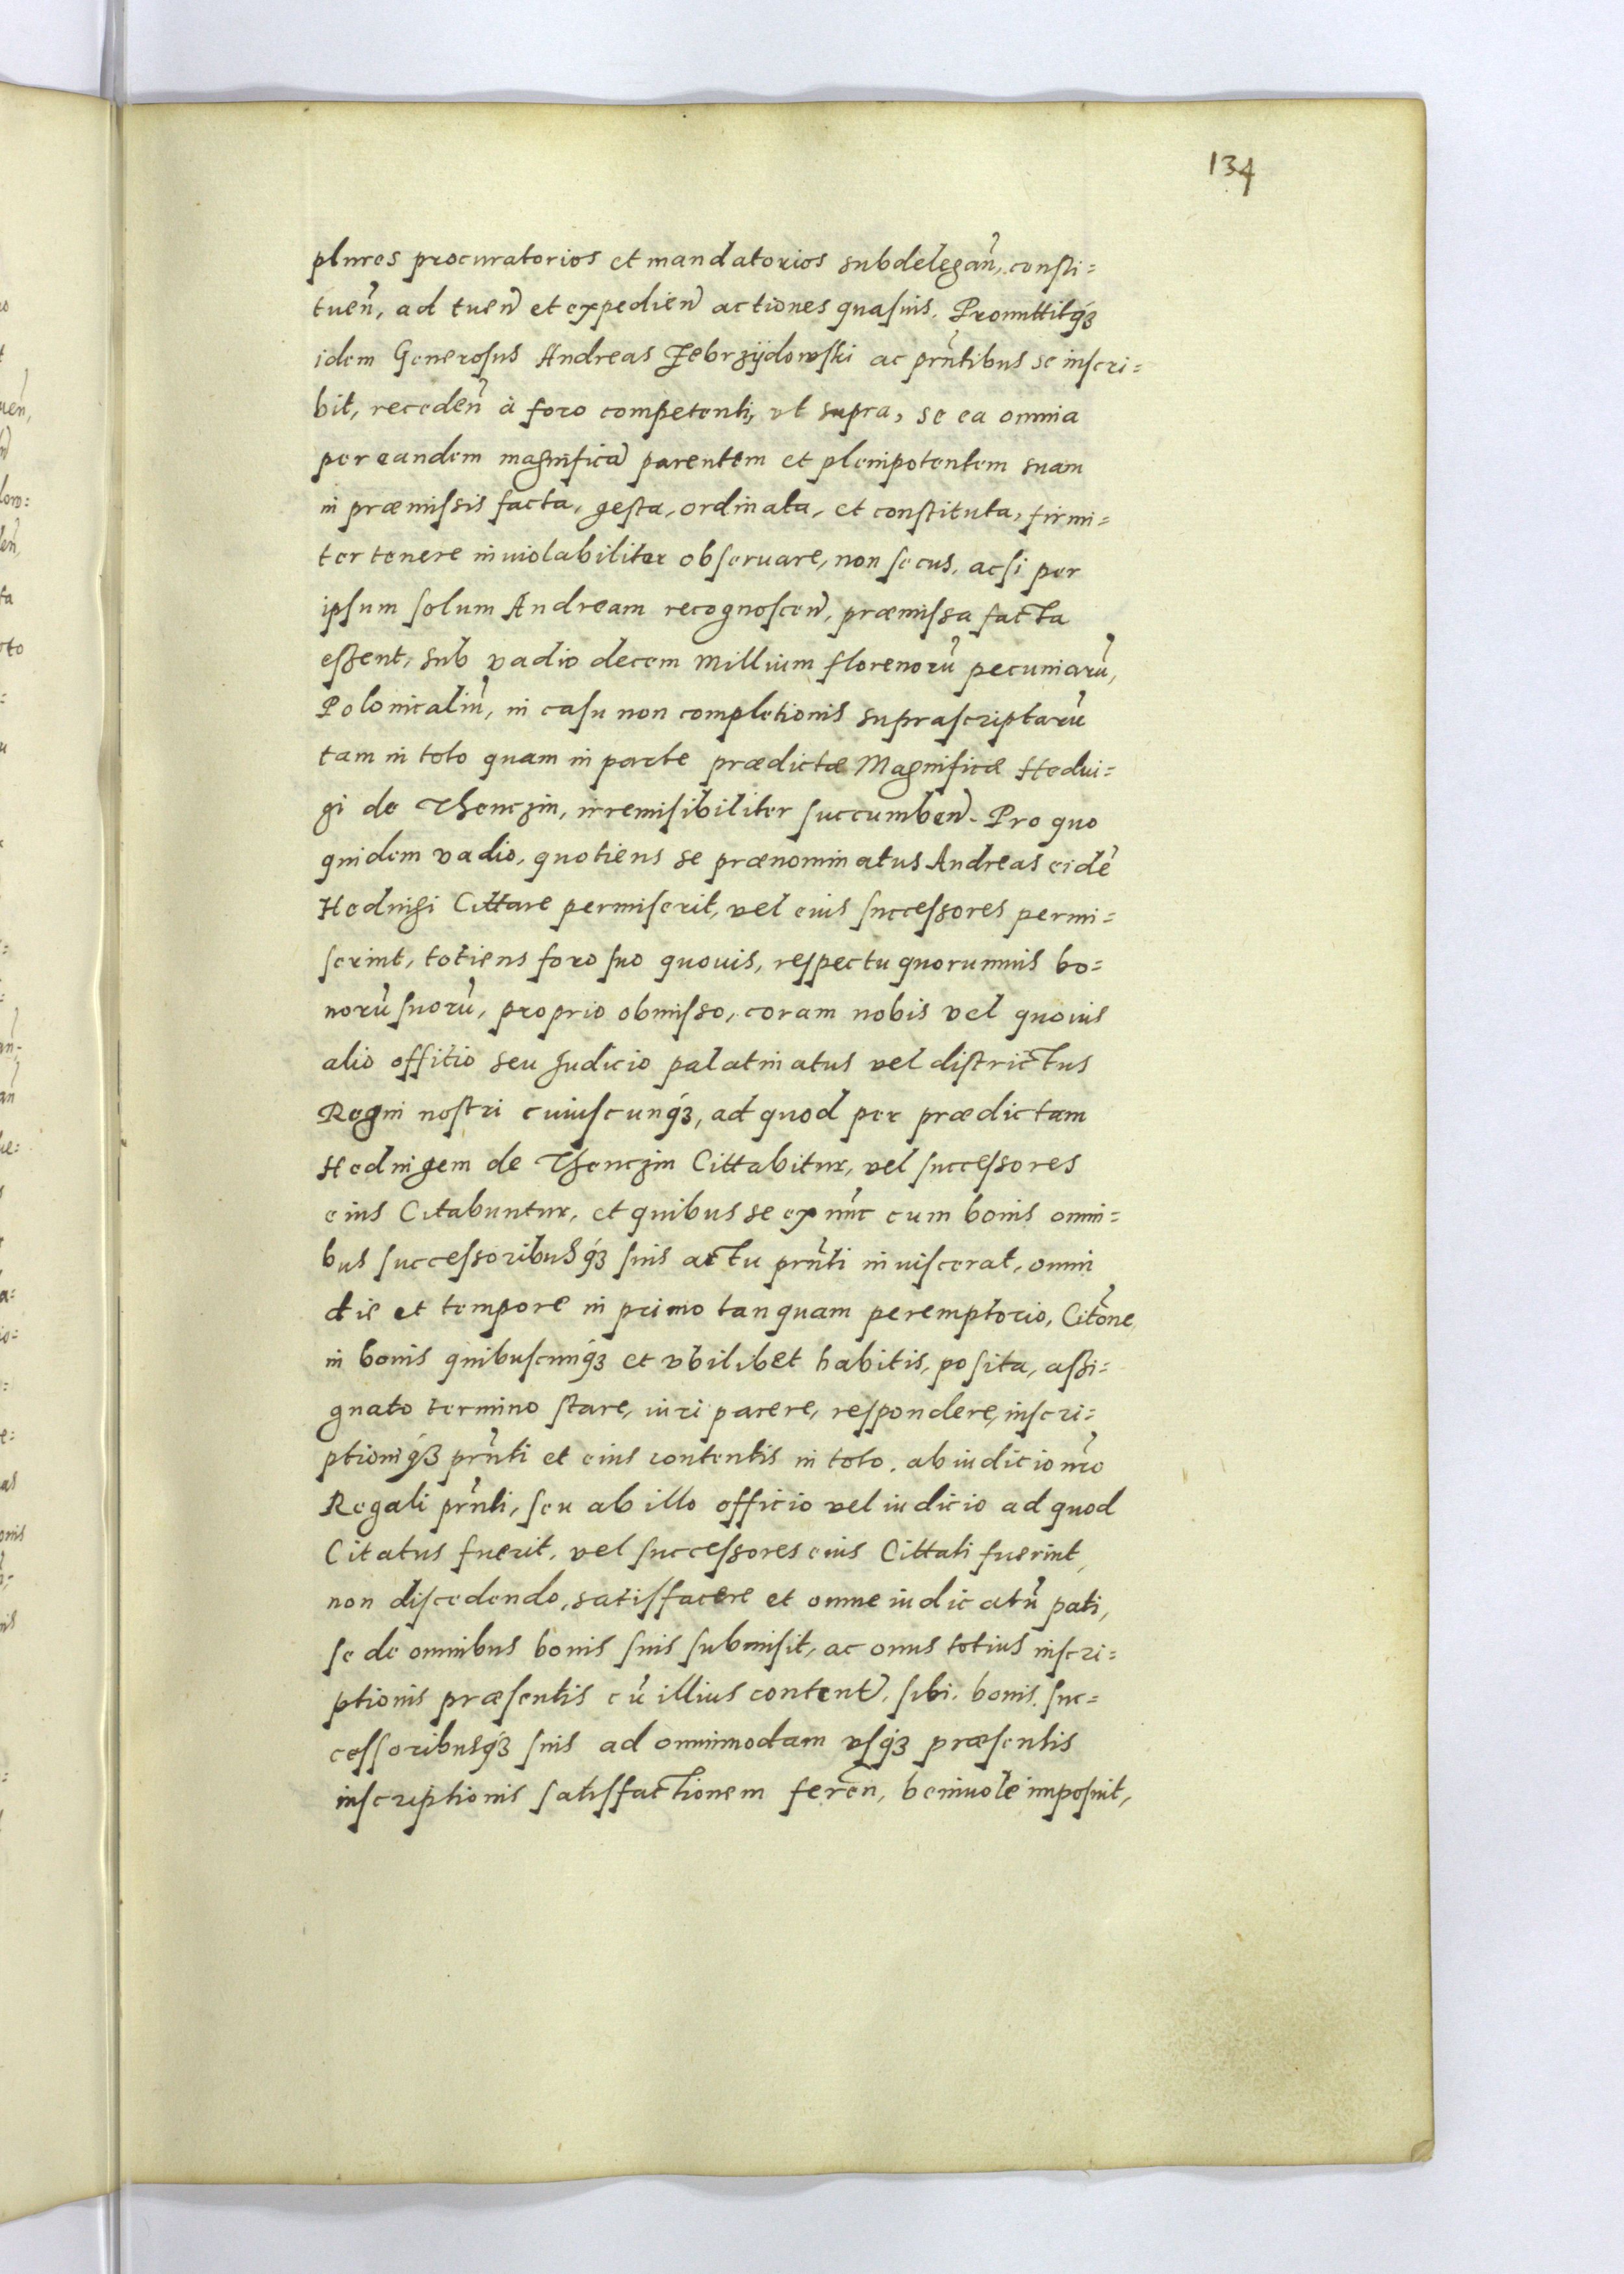 134
plures procuratorios et mandatorios subdelegan̄, consti=
tuen̄, ad tuen̄ et expedien̄ actiones quasuis. Promittitq́ꝫ
idem Generosus Andreas Zebrzijdowski ac pr̄ntibus se inscri=
bit, receden̄ à foro competenti, vt supra, se ea omnia
per eandem magnificā parentem et plenipotentem suam
in præmissis facta, gesta, ordinata, et constituta, firmi=
ter tenere inuiolabiliter obseruare, non secus, acsi per
ipsum solum Andream recognoscen̄, præmissa facta
essent, sub vadio decem millium florenorū pecuniarū,
Polonicaliū, in casu non completionis suprascriptarū
tam in toto quam in parte prædictæ Magnificæ Hedui=
gi de Thenczin, irremisibiliter succumben̄. Pro quo
quidem vadio, quotiens se prænominatus Andreas eidē
Heduigi Cittare permiserit, vel eius successores permi=
serint, totiens foro suo quouis, respectu quorumuis bo=
norū suorū, proprio obmisso, coram nobis vel quouis
alio offitio seu Judicio palatinatus vel districtus
Regni nostri cuiuscunq́ꝫ, ad quod per prædictam
Heduigem de Thenczin Cittabitur, vel successores
eius Citabuntur, et quibus se ex nūc cum bonis omni=
bus successoribusq́ꝫ suis actu pr̄nti inuiscerat, omni
die et tempore in primo tanquam peremptorio, Citōne
in bonis quibuscunq́ꝫ et vbilibet habitis, posita, assi=
gnato termino stare, iuri parere, respondere, inscri=
ptioniq́ꝫ pr̄nti et eius contentis in toto, ab iudicio nr̄o
Regali pr̄nti, seu ab illo officio vel iudicio ad quod
Citatus fuerit, vel successores eius Cittati fuerint,
non discedendo, satisfacere et omne iudicatū pati,
se de omnibus bonis suis submisit, ac onus totius inscri=
ptionis præsentis cū illius content̄, sibi, bonis, suc=
cessoribusq́ꝫ suis ad omnimodam vsq́ꝫ præsentis
inscriptionis satisfactionem feren̄, beniuole imposuit,